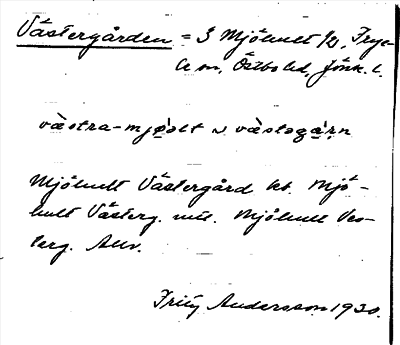 Västergården = 3 Mjöhult 1/2, Frye-
le sn, Östbo hd, Jönk. l.
västra-mjø̀ɑlt ~ västəgɑ̀ṛn
Mjöhult Västergård kb. Mjö-
hult Västerg. mtl. Mjöhult Ves-
terg. Auv.
Fritz Andersson 1930.